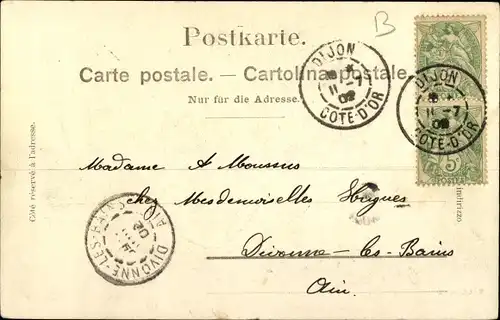 B
Postkarte.
Carte postale. — Cartolina postale.
Nur für die Adresse.
DIJON
11 -7
02
COTE-D'OR
DIJON
11 -7
02
COTE-D'OR
5
Côté réservé à l'adresse.
Madame A Moussus
chez Mesdemoiselles
Divonne-les-Bains
Ain.
DIVONNE-LES-B
02